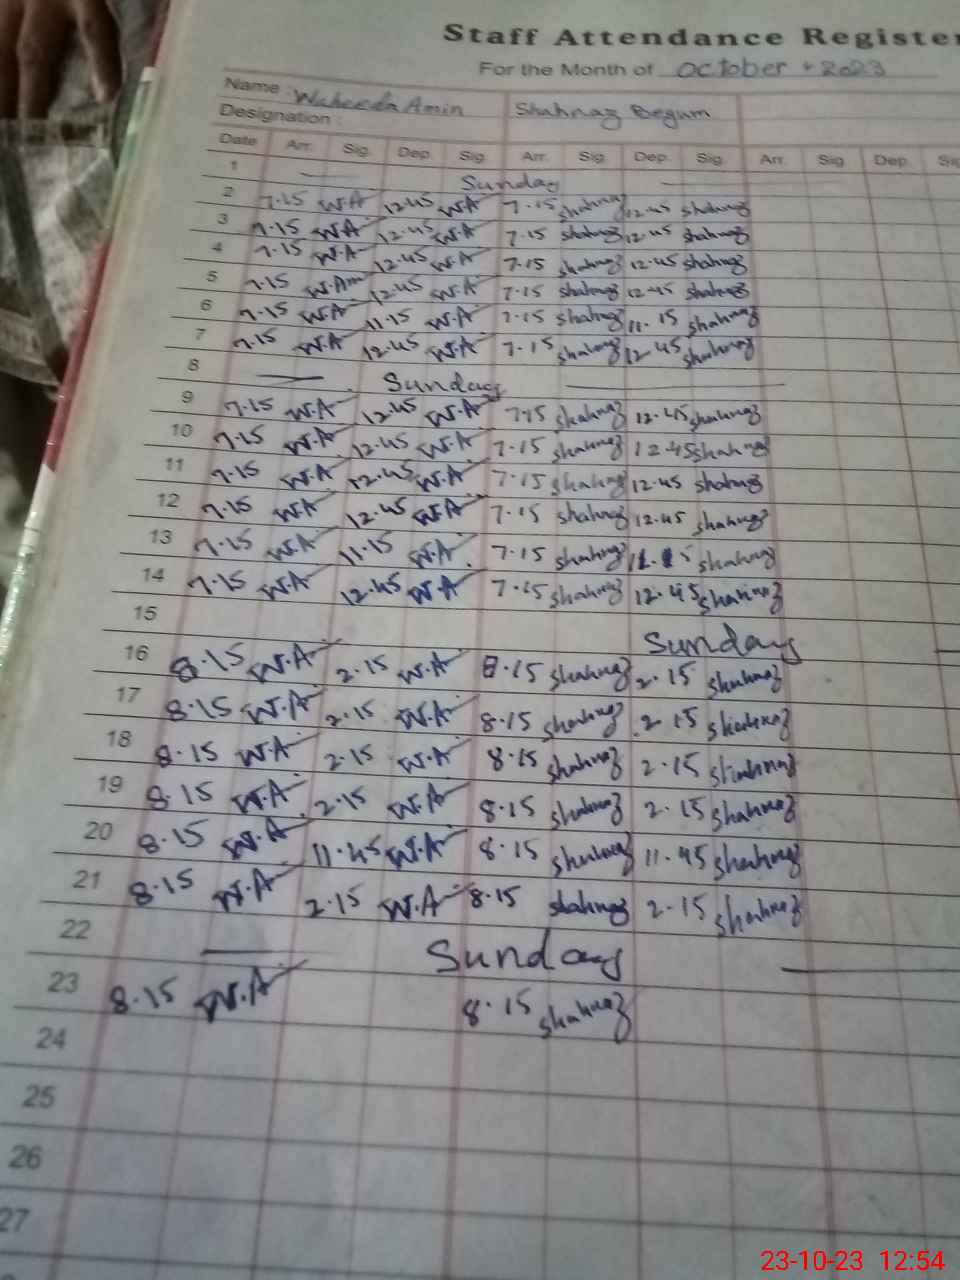 Staff Attendance Register
For the Month of October 2023
Name : Waheeda Amin Shahnaz Begum
Designation :
Date Arr. Sig. Dep. Sig. Arr. Sig. Dep. Sig. Arr. Sig Dep. Sig
1 Sunday
2 7.15 W.A 12.45 W.A 7.15 Shahnaz 12.45 Shahnaz
3 7.15 W.A 12.45 W.A 7.15 Shahnaz 12.45 Shahnaz
4 7.15 W.A 12.45 W.A 7.15 Shahnaz 12.45 Shahnaz
5 7.15 W.Am 12.45 W.A 7.15 Shahnaz 12.45 Shahnaz
6 7.15 W.A 11.15 W.A 7.15 Shahnaz 11.15 Shahnaz
7 7.15 W.A 12.45 W.A 7.15 Shahnaz 12.45 Shahnaz
8 Sunday
9 7.15 W.A 12.45 W.A 7.15 Shahnaz 12.45 Shahnaz
10 7.15 W.A 12.45 W.A 7.15 Shahnaz 12.45 Shahnaz
11 7.15 W.A 12.45 W.A 7.15 Shahnaz 12.45 Shahnaz
12 7.15 W.A 12.45 W.A 7.15 Shahnaz 12.45 Shahnaz
13 7.15 W.A 11.15 W.A 7.15 Shahnaz 11.15 Shahnaz
14 7.15 W.A 12.45 W.A 7.15 Shahnaz 12.45 Shahnaz
15 Sunday
16 8.15 W.A 2.15 W.A 8.15 Shahnaz 2.15 Shahnaz
17 8.15 W.A 2.15 W.A 8.15 Shahnaz 2.15 Shahnaz
18 8.15 W.A 2.15 W.A 8.15 Shahnaz 2.15 Shahnaz
19 8.15 W.A 2.15 W.A 8.15 Shahnaz 2.15 Shahnaz
20 8.15 W.A 11.45 W.A 8.15 Shahnaz 11.45 Shahnaz
21 8.15 W.A 2.15 W.A 8.15 Shahnaz 2.15 Shahnaz
22 Sunday
23 8.15 W.A 8.15 Shahnaz
24
25
26
27
23-10-23 12:54